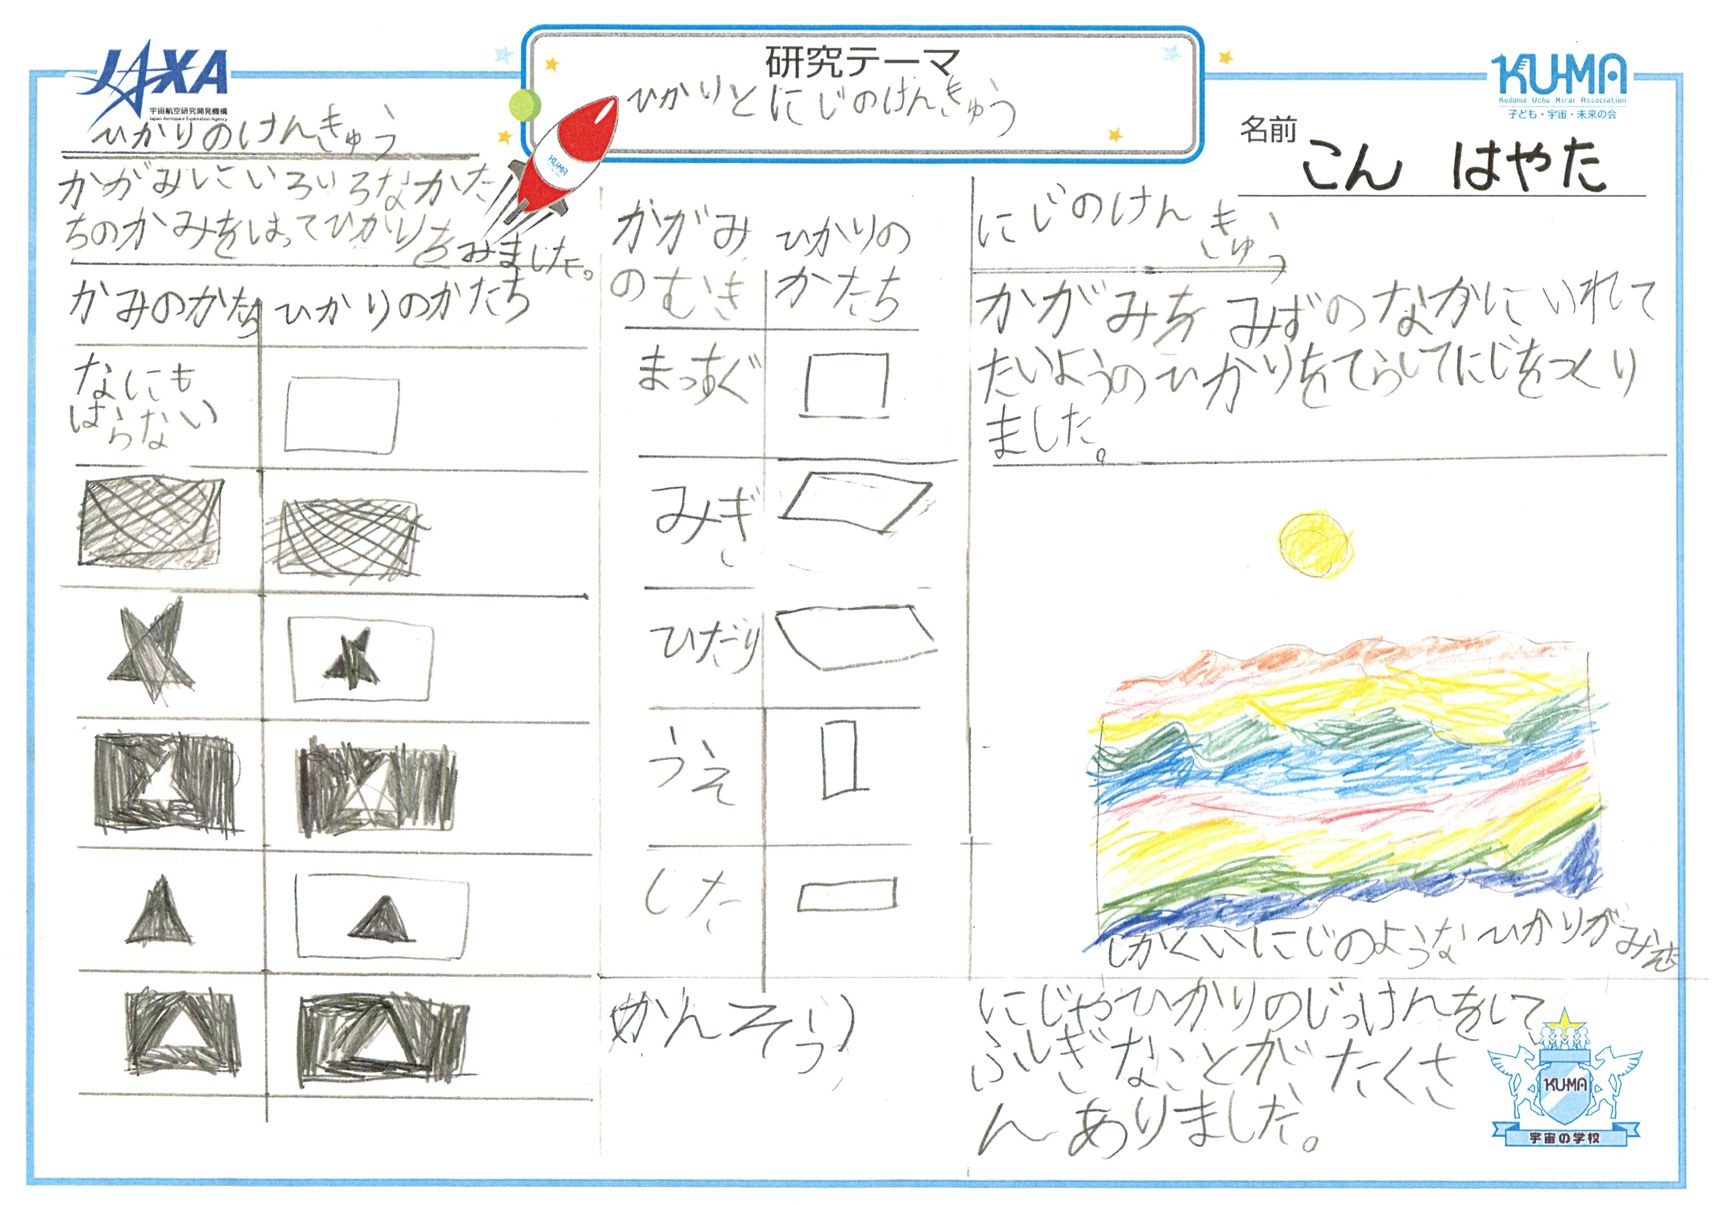 JAXA
宇宙航空研究開発機構
Japan Aerospace Exploration Agency
研究テーマ
ひかりとにじのけんきゅう
KUMA
KU-MA
Kodomo Uchu Mirai Association
子ども・宇宙・未来の会
名前
こん はやた
ひかりのけんきゅう
かがみにいろいろなかた
ちのかみをはってひかりをみました。
かみのかたち
ひかりのかたち
なにも
はらない
かがみ
のむき
ひかりの
かたち
まっすぐ
みぎ
ひだり
うえ
した
にじのけん
きゅう
かがみを みずのなかにいれて
たいようのひかりをてらしてにじをつくり
ました。
しかくいにじのようなひかりがみえた
かんそう
にじやひかりのじっけんをして
ふしぎなことがたくさ
んありました。
KU-MA
宇宙の学校